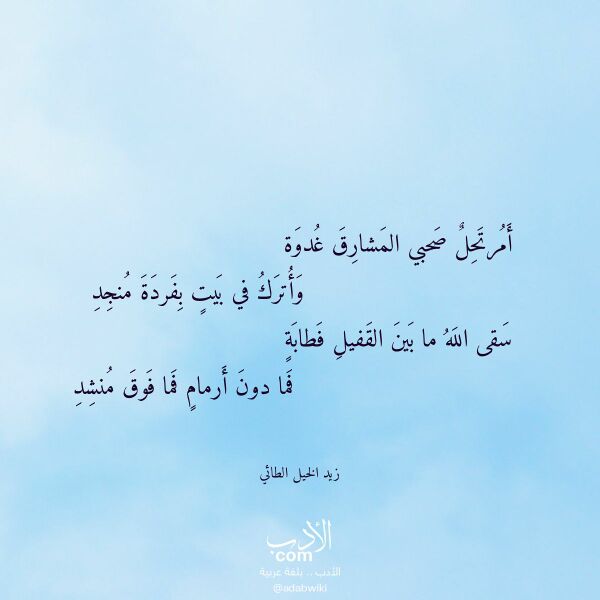 أَمُرتَحِلٌ صَحبي المَشارِقَ غُدوَة
وَأُترَكُ في بَيتٍ بِفَردَةَ مُنجِدِ
سَقى اللَهُ ما بَينَ القَفيلِ فَطابَةٍ
فَما دونَ أَرمامٍ فَما فَوقَ مُنشِدِ
زيد الخيل الطائي
الأدب
com
الأدب .. بلغة عربية
@adabwiki